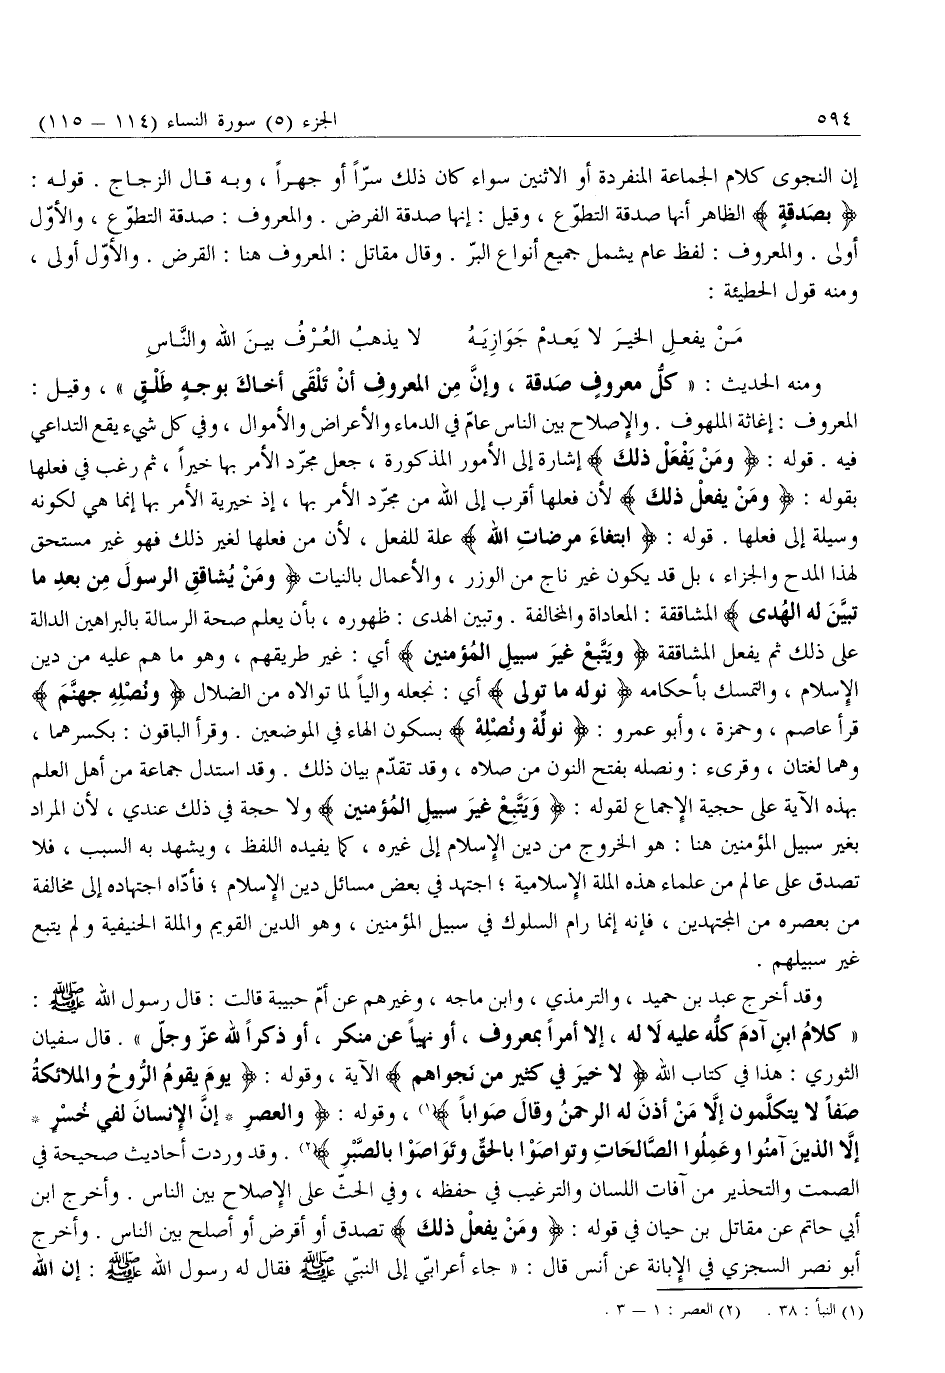 ٥٩٤
الجزء (٥) سورة النساء (١١٤ – ١١٥)
إن النجوى كلام الجماعة المنفردة أو الاثنين سواء كان ذلك سرّاً أو جهراً ، وبه قال الزجاج . قوله :
﴿ بصَدقةٍ ﴾ الظاهر أنها صدقة التطوّع ، وقيل : إنها صدقة الفرض . والمعروف : صدقة التطوّع ، والأوّل
أولى . والمعروف : لفظ عام يشمل جميع أنواع البرّ . وقال مقاتل : المعروف هنا : القرض . والأوّل أولى ،
ومنه قول الحطيئة :
مَنْ يفعلِ الخيرَ لا يَعدمْ جَوَازِيَهُ لا يذهبُ العُرْفُ بينَ الله والنَّاسِ
ومنه الحديث : « كلُّ معروفٍ صَدقة ، وإنَّ مِن المعروفِ أنْ تَلْقَى أخاكَ بوجهٍ طَلْقٍ » ، وقيل :
المعروف : إغاثة الملهوف . والإِصلاح بين الناس عامّ في الدماء والأعراض والأموال ، وفي كل شيء يقع التداعي
فيه . قوله : ﴿ ومَنْ يَفْعَلْ ذلكَ ﴾ إشارة إلى الأمور المذكورة ، جعل مجرّد الأمر بها خيراً ، ثم رغب في فعلها
بقوله : ﴿ ومَنْ يفعلْ ذلكَ ﴾ لأن فعلها أقرب إلى الله من مجرّد الأمر بها ، إذ خيرية الأمر بها إنما هي لكونه
وسيلة إلى فعلها . قوله : ﴿ ابتغاءَ مرضاتِ الله ﴾ علة للفعل ، لأن من فعلها لغير ذلك فهو غير مستحق
لهذا المدح والجزاء ، بل قد يكون غير ناج من الوزر ، والأعمال بالنيات ﴿ ومَنْ يُشاققِ الرسولَ مِن بعدِ ما
تبيَّنَ له الهُدى ﴾ المشاققة : المعاداة والمخالفة . وتبين الهدى : ظهوره ، بأن يعلم صحة الرسالة بالبراهين الدالة
على ذلك ثم يفعل المشاققة ﴿ ويَتَّبعْ غيرَ سبيلِ المُؤمنين ﴾ أي : غير طريقهم ، وهو ما هم عليه من دين
الإِسلام ، والتمسك بأحكامه ﴿ نوله ما تولى ﴾ أي : نجعله والياً لما توالاه من الضلال ﴿ ونُصْلِهِ جهنَّمَ ﴾
قرأ عاصم ، وحمزة ، وأبو عمرو : ﴿ نولّهْ ونُصْلِهْ ﴾ بسكون الهاء في الموضعين . وقرأ الباقون : بكسرهما ،
وهما لغتان ، وقرىء : ونصله بفتح النون من صلاه ، وقد تقدّم بيان ذلك . وقد استدل جماعة من أهل العلم
بهذه الآية على حجية الإِجماع لقوله : ﴿ وَيَتَّبِعْ غيرَ سبيلِ المُؤمنين ﴾ ولا حجة في ذلك عندي ، لأن المراد
بغير سبيل المؤمنين هنا : هو الخروج من دين الإِسلام إلى غيره ، كما يفيده اللفظ ، ويشهد به السبب ، فلا
تصدق على عالم من علماء هذه الملة الإِسلامية ؛ اجتهد في بعض مسائل دين الإِسلام ؛ فأدّاه اجتهاده إلى مخالفة
من بعصره من المجتهدين ، فإنه إنما رام السلوك في سبيل المؤمنين ، وهو الدين القويم والملة الحنيفية ولم يتبع
غير سبيلهم .
وقد أخرج عبد بن حميد ، والترمذي ، وابن ماجه ، وغيرهم عن أمّ حبيبة قالت : قال رسول الله ﷺ :
« كلامُ ابنِ آدمَ كلُّه عليه لَا له ، إلا أمراً بمعروف ، أو نهياً عن منكر ، أو ذكراً لله عزّ وجلّ » . قال سفيان
الثوري : هذا في كتاب الله ﴿ لا خيرَ في كثير من نَجواهم ﴾ الآية ، وقوله : ﴿ يومَ يقومُ الرُّوحُ والملائكةُ
صَفاً لا يتكلَّمون إلَّا مَنْ أذنَ له الرحمنُ وقالَ صَواباً ﴾(١) ، وقوله : ﴿ والعصرِ * إنَّ الإِنسانَ لفي خُسْرٍ *
إلَّا الذينَ آمنُوا وعَمِلُوا الصَّالحَاتِ وتواصَوْا بالحَقِّ وتَوَاصَوْا بالصَّبْرِ ﴾(٢) . وقد وردت أحاديث صحيحة في
الصمت والتحذير من آفات اللسان والترغيب في حفظه ، وفي الحثّ على الإِصلاح بين الناس . وأخرج ابن
أبي حاتم عن مقاتل بن حيان في قوله : ﴿ ومَنْ يفعلْ ذلكَ ﴾ تصدق أو أقرض أو أصلح بين الناس . وأخرج
أبو نصر السجزي في الإِبانة عن أنس قال : « جاء أعرابيّ إلى النبيّ ﷺ فقال له رسول الله ﷺ : إن الله
(١) النبأ : ٣٨ . (٢) العصر : ١ – ٣ .